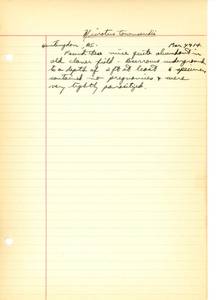 Microtus townsendii
Huntingdon, BC. Mar 27 14
Found these mice quite abundant in
old clover field. Burrows underground
to a depth of 2 ft at least 6 specimens
contained no pregnancies & were
very lightly parasitized.